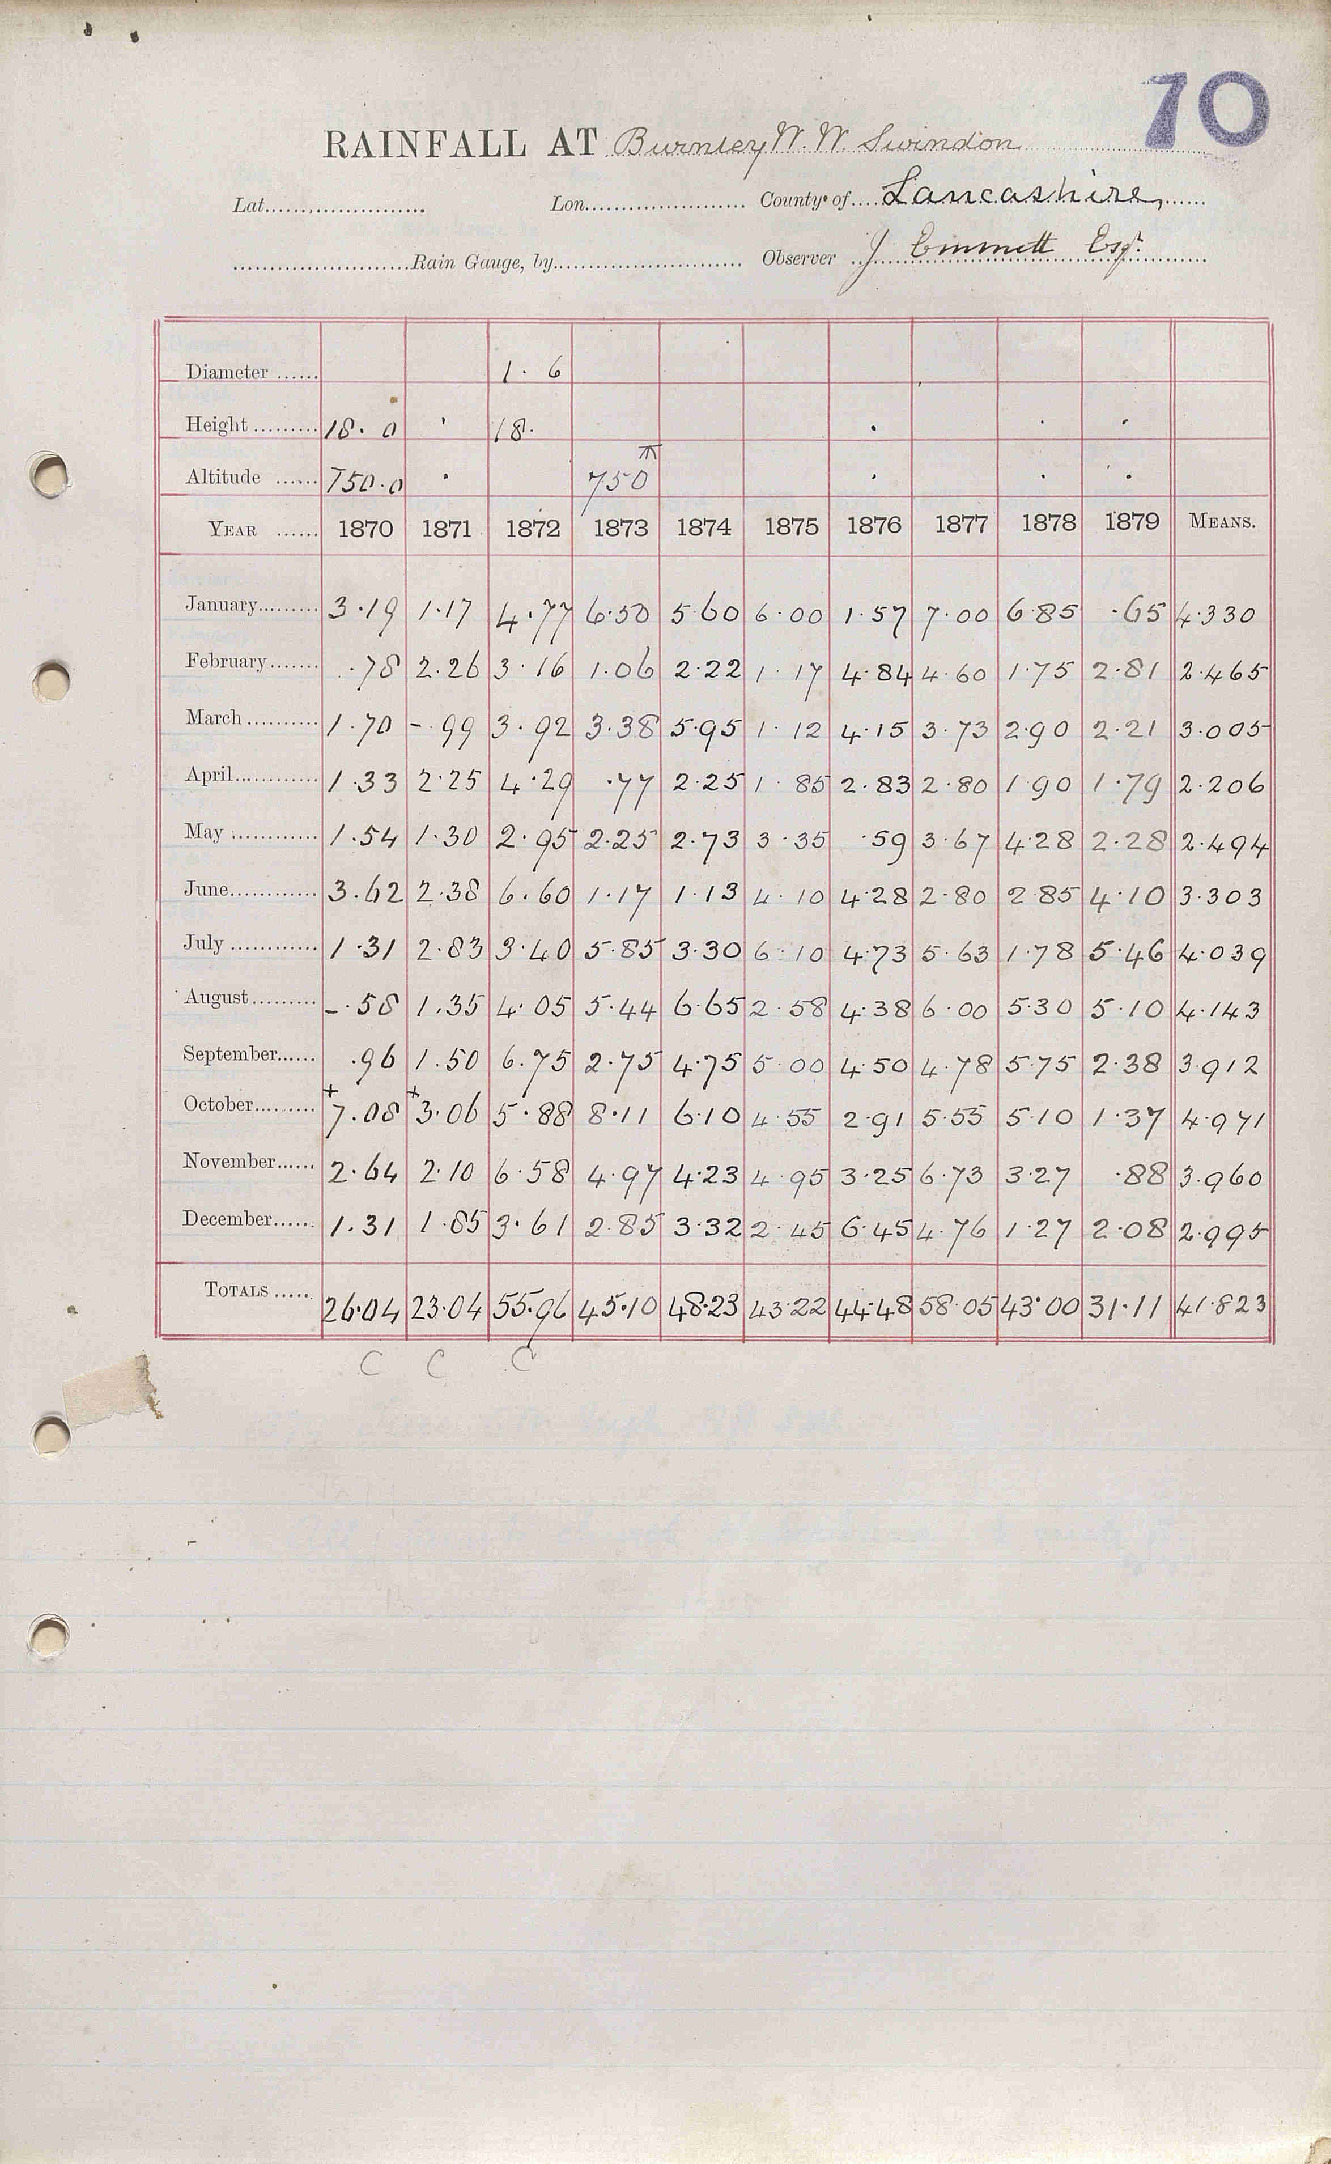 70
RAINFALL AT Burnley W. W. Swindon
Lat. Lon. County of Lancashire,
Rain Gauge, by Observer J Emmett Esqr.
Diameter 1. 6
Height 18. 0 18.
Altitude 750.0 750
YEAR 1870 1871 1872 1873 1874 1875 1876 1877 1878 1879 MEANS.
January 3.19 1.17 4.77 6.50 5.60 6.00 1.57 7.00 6.85 .65 4.330
February .78 2.26 3.16 1.06 2.22 1.17 4.84 4.60 1.75 2.81 2.465
March 1.70 -.99 3.92 3.38 5.95 1.12 4.15 3.73 2.90 2.21 3.005
April 1.33 2.25 4.29 .77 2.25 1.85 2.83 2.80 1.90 1.79 2.206
May 1.54 1.30 2.95 2.25 2.73 3.35 .59 3.67 4.28 2.28 2.494
June 3.62 2.38 6.60 1.17 1.13 4.10 4.28 2.80 2.85 4.10 3.303
July 1.31 2.83 3.40 5.85 3.30 6.10 4.73 5.63 1.78 5.46 4.039
August -.58 1.35 4.05 5.44 6.65 2.58 4.38 6.00 5.30 5.10 4.143
September .96 1.50 6.75 2.75 4.75 5.00 4.50 4.78 5.75 2.38 3.912
October +7.08 +3.06 5.88 8.11 6.10 4.55 2.91 5.55 5.10 1.37 4.971
November 2.64 2.10 6.58 4.97 4.23 4.95 3.25 6.73 3.27 .88 3.960
December 1.31 1.85 3.61 2.85 3.32 2.45 6.45 4.76 1.27 2.08 2.995
TOTALS 26.04 23.04 55.96 45.10 48.23 43.22 44.48 58.05 43.00 31.11 41.823
C C C